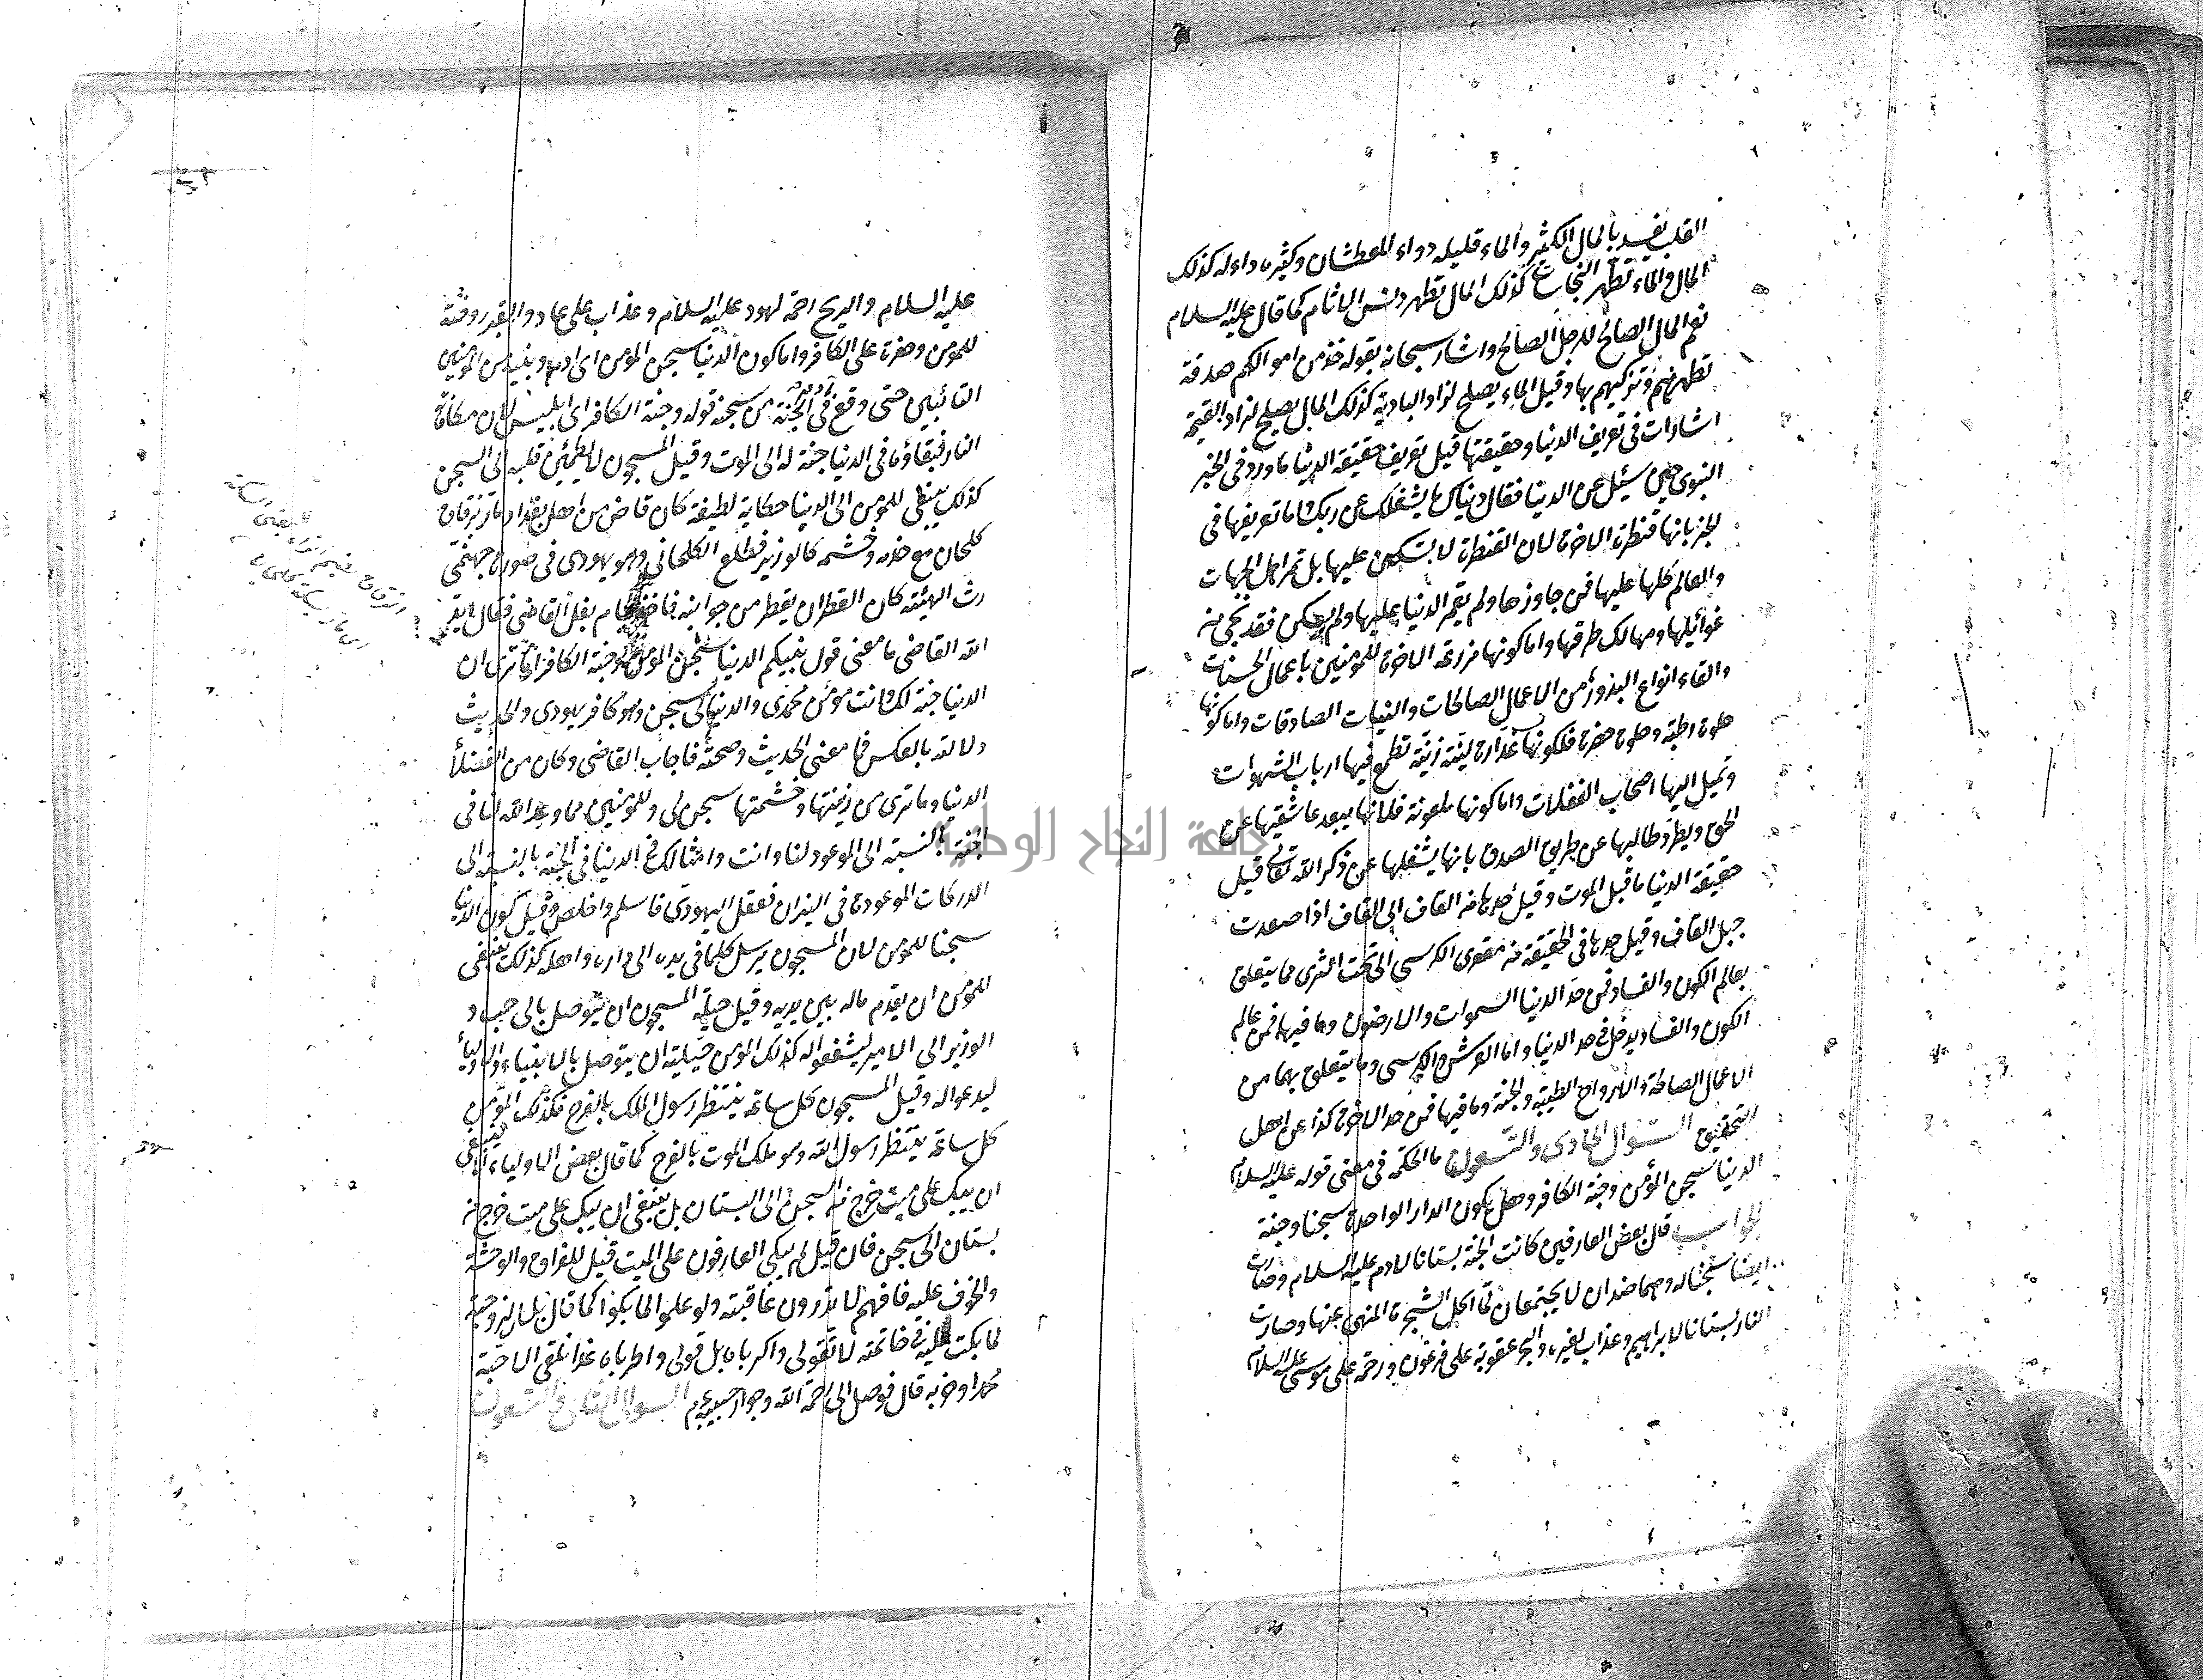 القلب يفسد بالمال الكثير والماء قليله دواء للعطشان وكثيره داء له كذلك
المال والماء تطهر النجاسة كذلك المال تطهر دنس الاثام كما قال عليه السلام
نعم المال الصالح للرجل الصالح واشار سبحانه بقوله خذ من اموالكم صدقة
تطهرهم وتزكيهم بها وقيل الماء يصلح لزاد البادية كذلك المال يصلح لزاد القيمة
اشارات في تعريف الدنيا وحقيقتها قيل تعريف حقيقة الدنيا ما ورد في الخبر
النبوي حين سئل عن الدنيا فقال دنياك ما يشغلك عن ربك اما تعريفها في
الخبر بانها قنطرة الاخرة لان القنطرة لا يسكن عليها بل تمر اهل الجهات
والعالم كلها عليها فمن جاوزها ولم يقم الدنيا عليها ولم يسكن فقد نجى من
غوائيلها ومهالك طرقها واما كونها مزرعة الاخرة للمؤمنين باعمال الحسنات
والقاء انواع البذور من الاعمال الصالحات والنيات الصادقات واما كونها
حلوة رطبة وحلوة خضرة فلكونها غدارة لينة زينة تطمع فيها ارباب الشهوات
وتميل اليها اصحاب الغفلات واما كونها ملعونة فلانها يبعد عاشقيها عن
الحق ويطرد طالبها عن طريق الصدق بانها يشغلها عن ذكر الله تعالى قيل
حقيقة الدنيا ما قبل الموت وقيل حدها من القاف الى القاف اذا صعدت
جبل القاف وقيل حدها في الحقيقة من مقعر الكرسي الى تحت الثرى مما يتعلق
بعالم الكون والفساد فمن حد الدنيا السموات والارضون وما فيها فمن عالم
الكون والفساد يدخل في حد الدنيا واما العرش والكرسي وما يتعلق بهما من
الاعمال الصالحة والارواح الطيبة والجنة وما فيها فمن حد الاخرة كذا عن اهل
التحقيق السؤال الحادي والتسعون ما الحكمة في معنى قوله عليه السلام
الدنيا سجن المؤمن وجنة الكافر وهل يكون الدار الواحدة سجنا وجنة
الجواب قال بعض العارفين كانت الجنة بستانا لادم عليه السلام وصارت
ايضا سجنا له وهما ضدان لا يجتمعان لما اكل الشجرة المنهى عنها وصارت
النار بستانا لابراهيم وعذاب لغيره والبحر عقوبة على فرعون ورحمة على موسى عليه السلام
عليه السلام والريح رحمة لهود عليه السلام وعذاب على عاد والقبر روضة
للمؤمن وحفرة على الكافر واما كون الدنيا سجن المؤمن اى ادم وبنيه من المؤمنين
التائبين حتى وقع في الجنة من سجنه قوله وجنة الكافر اى ابليس لان مكانه
النار فبقاؤه في الدنيا جنة له الى الموت وقيل المسجون لا يطمئن قلبه الى السجن
كذلك ينبغي للمؤمن الى الدنيا حكاية لطيفة كان قاض من اهل بغداد مار بزقاق
كلخان مع خدمه وخشمه كالوزير فطلع الكلخاني وهو يهودي في صورة جهنمي
رث الهيئة كان القطران يقطر من جوانبه فاخذ لجام بغل القاضي فقال ايد
الله القاضي ما معنى قول نبيكم الدنيا سجن المؤمن وجنة الكافر اما ترى ان
الدنيا جنة لك وانت مؤمن محمدى والدنيا لى سجن وهو كافر يهودى والحديث
دلالته بالعكس فما معنى الحديث وصحته فاجاب القاضي وكان من الفضلاء
الدنيا وما ترى من زينتها وخشمتها سجن لى وللمؤمنين مما وعد الله لنا في
الجنة بالنسبة الى الموعود لنا وانت وامثالك في الدنيا في الجنة بالنسبة الى
الدركات الموعودة في النيران فعقل اليهودي فاسلم واخلص وقيل كون الدنيا
سجنا للمؤمن لان المسجون يرسل كلما في يده الى داره واهله كذلك ينبغي
للمؤمن ان يقدم ماله بين يديه وقيل حيلة المسجون ان يتوصل بالى
الوزير الى الامير ليشفعوا له كذلك المؤمن حيلته ان يتوصل بالانبياء والاولياء
ليدعوا له وقيل المسجون كل ساعة ينتظر رسول الملك بالفرح فكذلك المؤمن
كل ساعة ينتظر رسول الله وهو ملك الموت بالفرح كما قال بعض الاولياء لا ينبغي
ان يبك على ميت خرج من السجن الى البستان بل ينبغي ان يبك على ميت خرج من
بستان الى سجن فان قيل لم يبكى العارفون على الميت قيل للفراق والوحشة
والخوف عليه فافهم لا يدرون عاقبته ولو علموا لما بكوا كما قال بلال لزوجته
لما بكت عليه في خاتمته لا تقولى واكرباه بل قولى واطرباه غدا نلقى الاحبة
محمدا وحزبه قال فوصل الى رحمة الله وجوار حبيبه م السؤال الثاني والتسعون
جامعة النجاح الوطنية